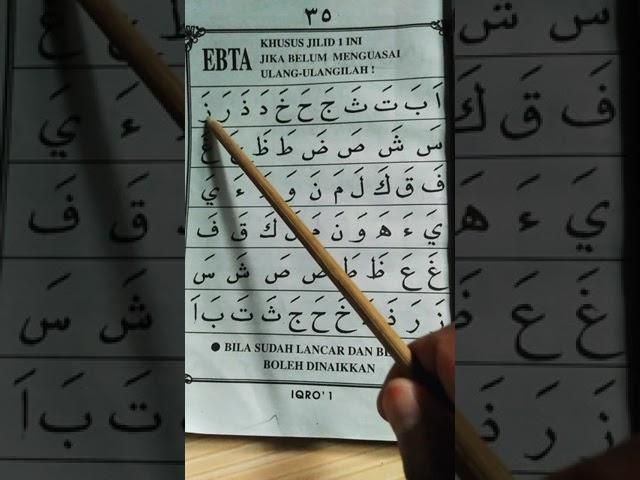 ٣٥
EBTA
KHUSUS JILID 1 INI
JIKA BELUM MENGUASAI
ULANG-ULANGILAH !
اَ بَ تَ ثَ جَ حَ خَ دَ ذَ رَ زَ
سَ شَ صَ ضَ طَ ظَ غَ
فَ قَ كَ لَ مَ نَ وَ ءَ يَ
يَ ءَ هَ وَ نَ مَ لَ كَ قَ فَ
غَ عَ ظَ طَ ضَ صَ شَ سَ
زَ رَ ذَ خَ حَ جَ ثَ تَ بَ اَ
● BILA SUDAH LANCAR DAN
BOLEH DINAIKKAN
IQRO' 1